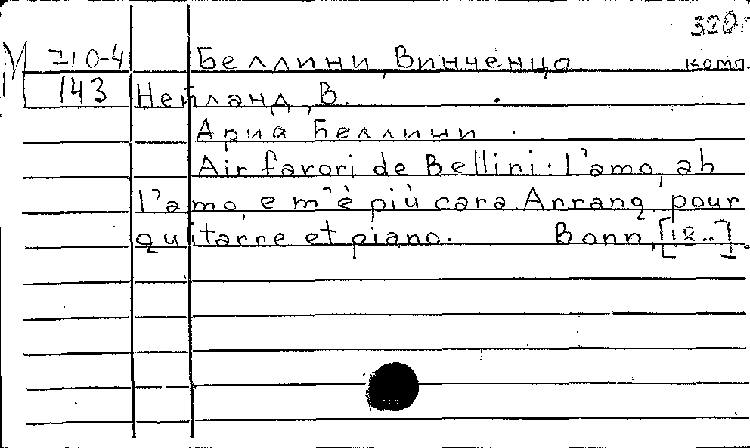 320г
М 210-4 Беллини, Винченцо комп.
143 Нейланд, В.
Ария Беллини.
Air favori de Bellini: L'amo, ah
l'amo, e m'è più cara. Arrang. pour
guitarre et piano. Bonn, [18..].